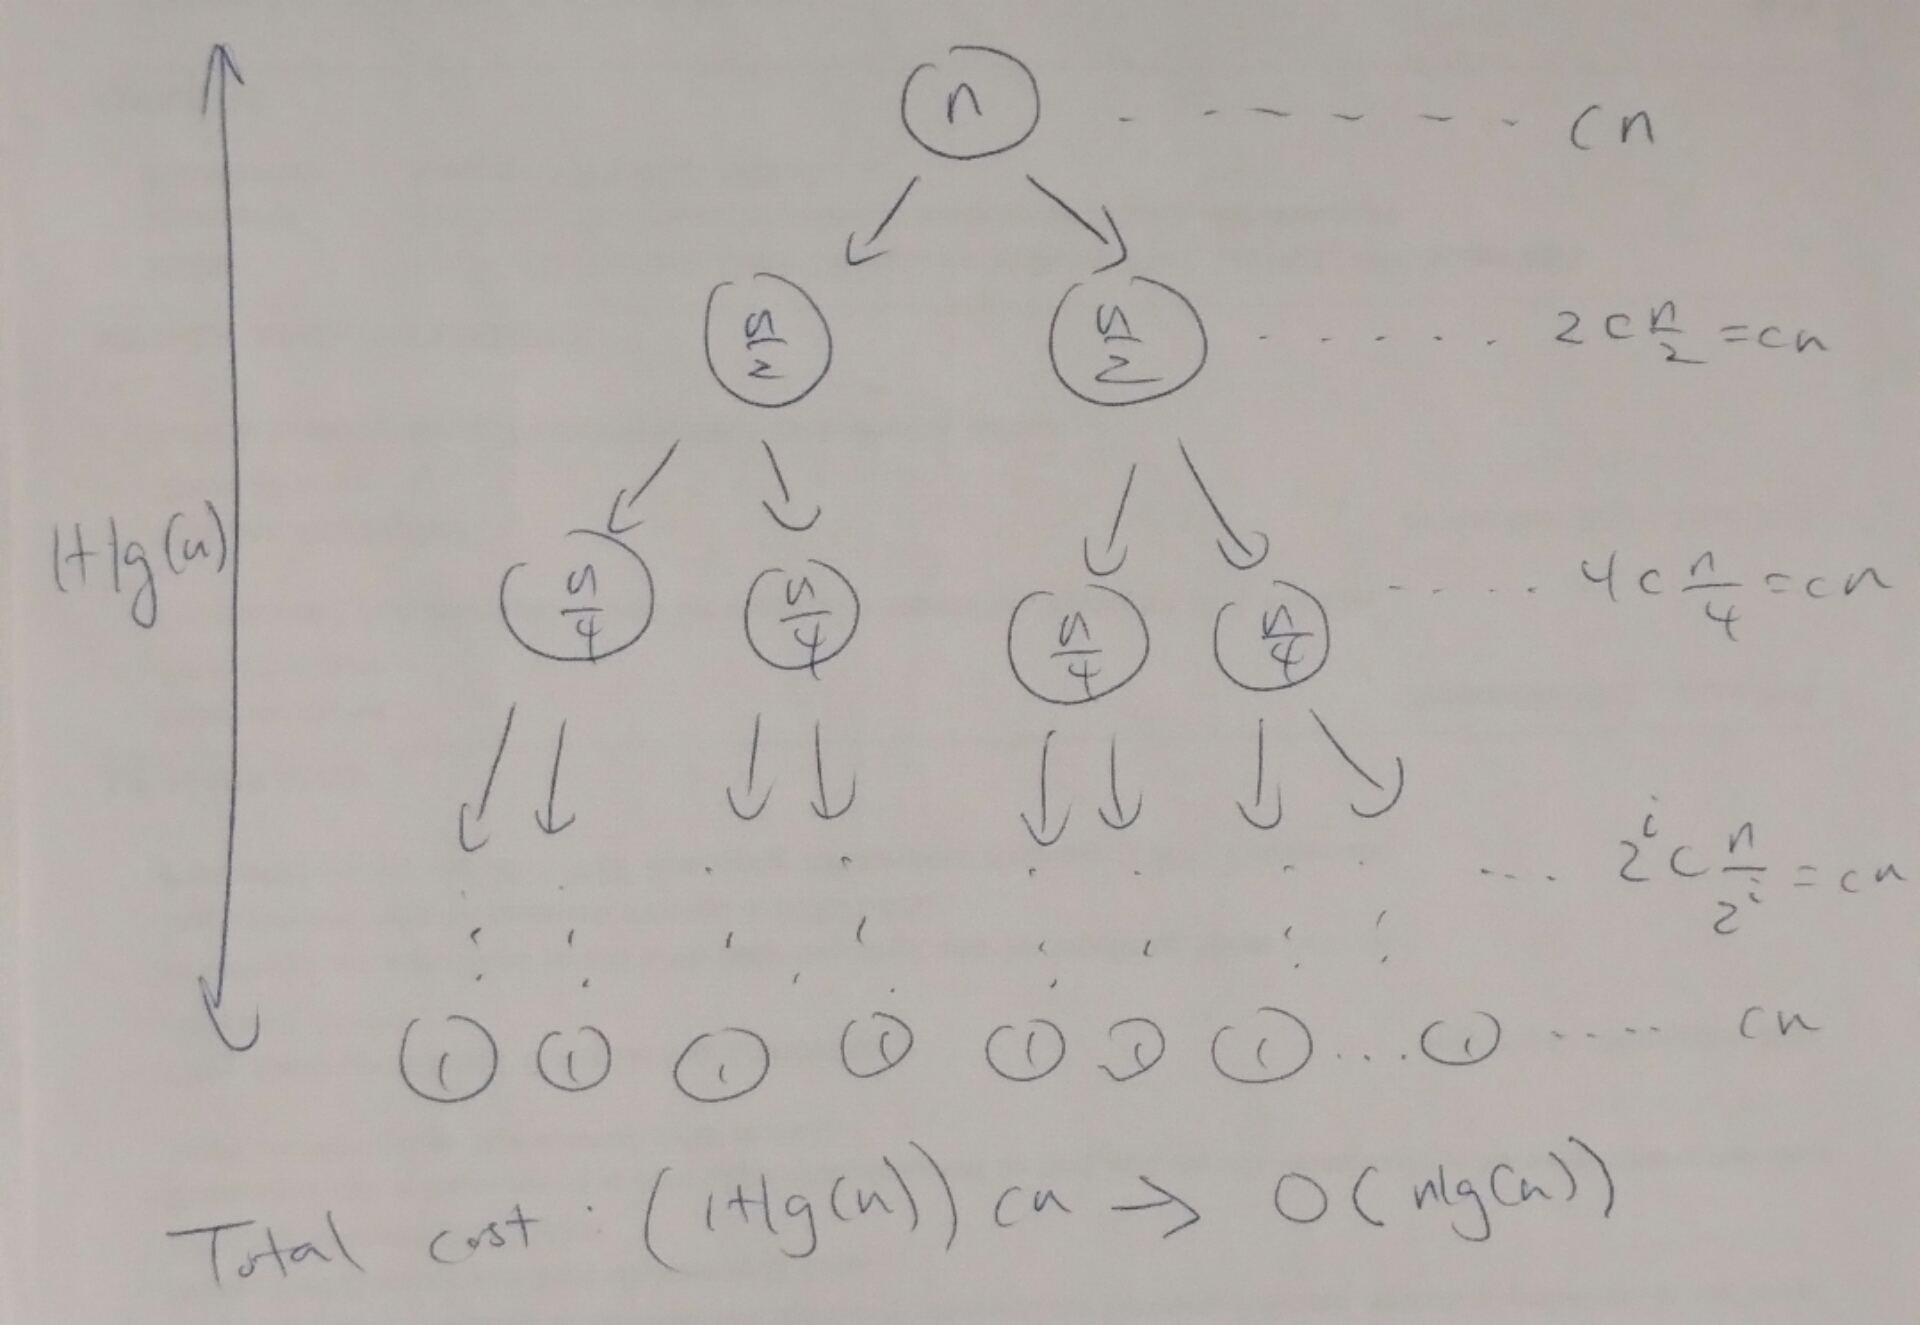 n - - - - - - cn
n/2 n/2 . . . . . . 2c n/2 = cn
1+lg(n)
n/4 n/4 n/4 n/4 - - - . . 4c n/4 = cn
... 2^i c n/2^i = cn
1 1 1 1 1 1 1 ... 1 ..... cn
Total cost : (1+lg(n)) cn → O(nlg(n))